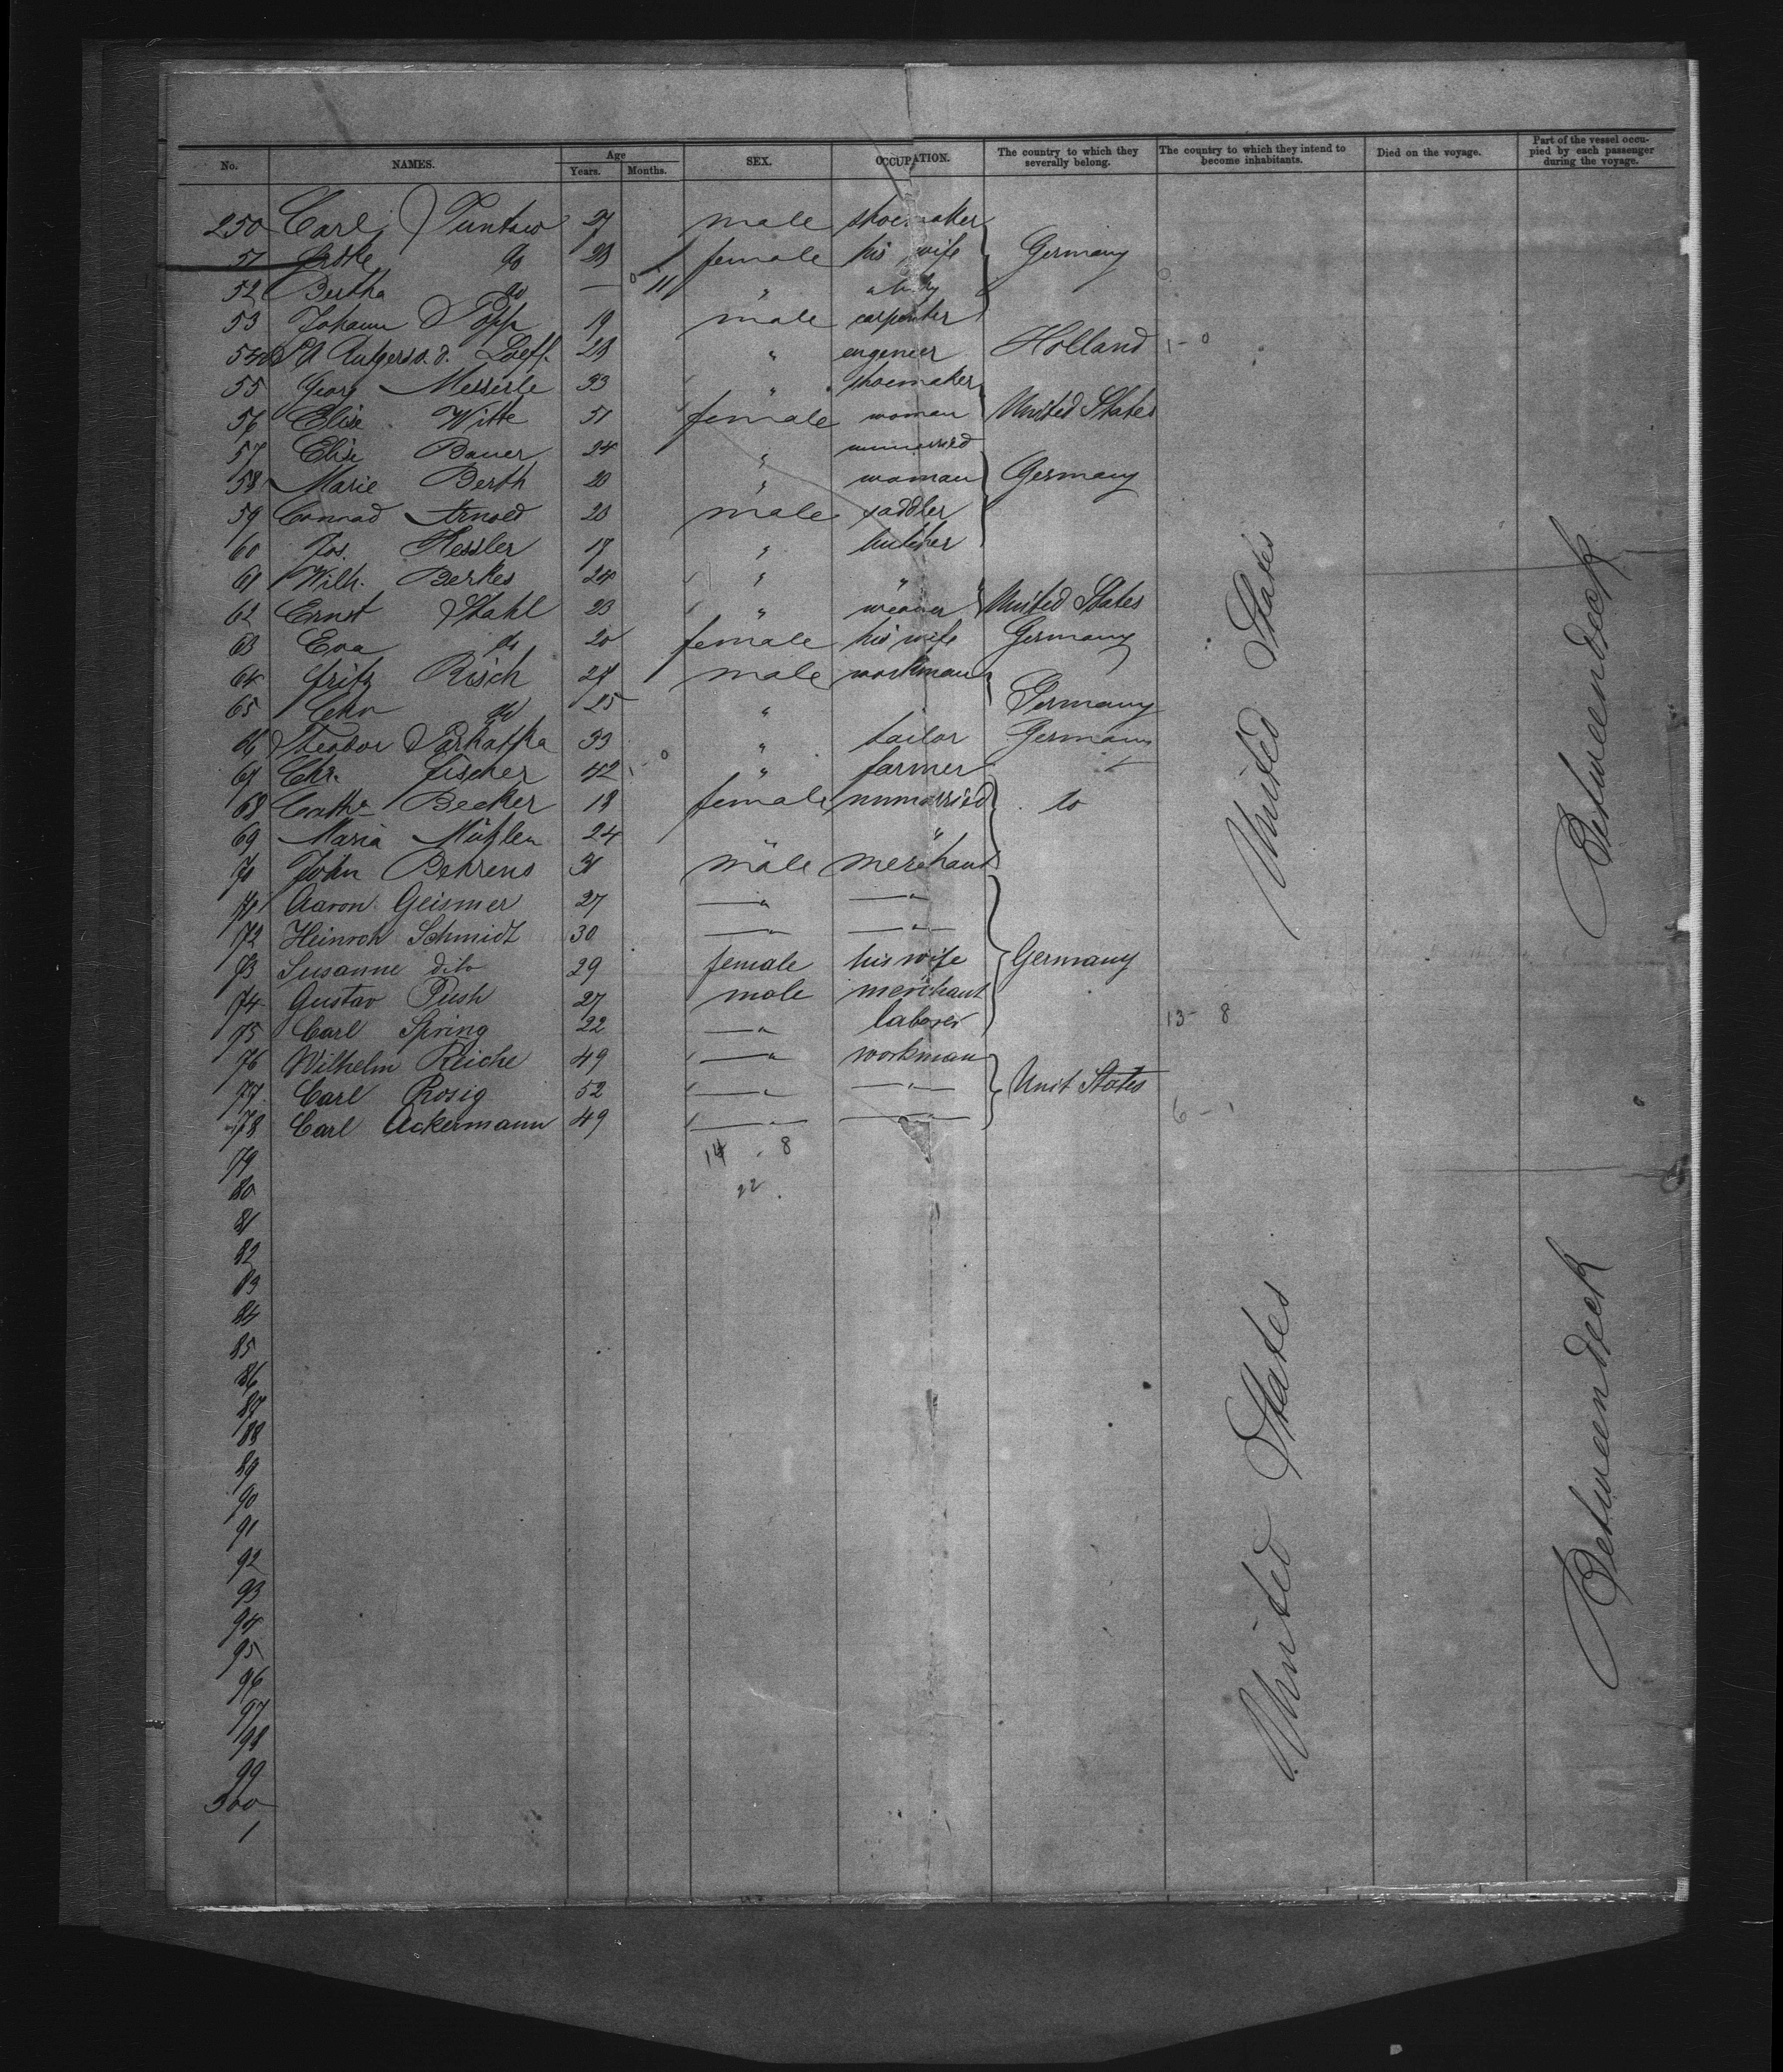 No. NAMES. Age Years. Months. SEX. OCCUPATION. The country to which they severally belong. The country to which they intend to become inhabitants. Died on the voyage. Part of the vessel occupied by each passenger during the voyage.
250 Carl 27 male shoemaker
51 do 28 female his wife Germany
52 Bertha do — 11 "
53 Johann Popp 19 male carpenter
54 Rutgers v. d. Loeff 28 " engeneer Holland 1 - 0
55 Georg Messerle 33 " shoemaker
56 Elise Witte 51 female woman United States
57 Elise Bauer 24 " unmarried
58 Marie Berth 20 " woman Germany
59 Conrad Arnold 28 male saddler
60 Jos. Kessler 17 " butcher
61 Wilh. Berkes 24 " "
62 Ernst Stahl 23 " weaver United States
63 Eva do 20 female his wife Germany
64 Fritz Risch 27 male workman
65 do 25 " Germany
66 Theodor 33 " tailor Germany
67 Chr. Fischer 42 " farmer
68 Cath. Becker 18 female unmarried
69 Maria Mühlen 24 " "
70 John Behrens 31 male merchant
71 Aaron Geismer 27 —"— —"—
72 Heinrch Schmidt 30 —"— —"—
73 Susanne dito 29 female his wife Germany
74 Gustav Push 27 male merchant
75 Carl Spring 22 —"— laborer 13 - 8
76 Wilhelm Reiche 49 —"— workman
77 Carl Rosig 52 —"— —"— Unit States
78 Carl Ackermann 49 —"— —"— 6 - 1
79 14 - 8
80 22
81
82
83
84
85
86
87
88
89
90
91
92
93
94
95
96
97
98
99
300
1
United States
United States
Betweendeck
Betweendeck